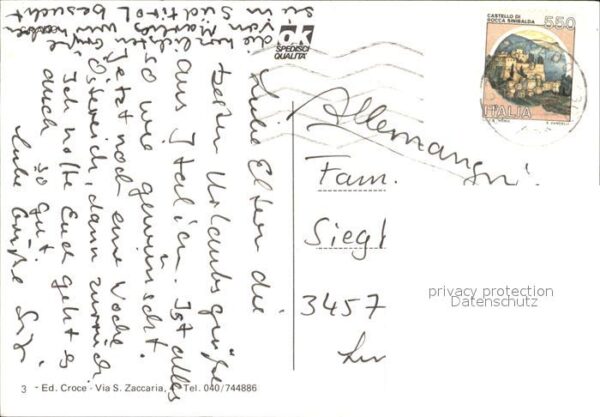 Liebe Eltern die
besten Urlaubsgrüße
aus Italien. Ist alles
so wie gewünscht.
Jetzt noch eine Woche
Österreich, dann zurück
Ich hoffe Euch geht es
auch so gut.
Liebe Grüße
die herzlichsten Grüße
von
in Südtirol besucht
SPEDISCI
QUALITÀ
CASTELLO DI
ROCCA SINIBALDA
550
ITALIA
Allemangni
Fam.
Siegl
3457
privacy protection
Datenschutz
3 - Ed. Croce - Via S. Zaccaria, 4 Tel. 040/744886